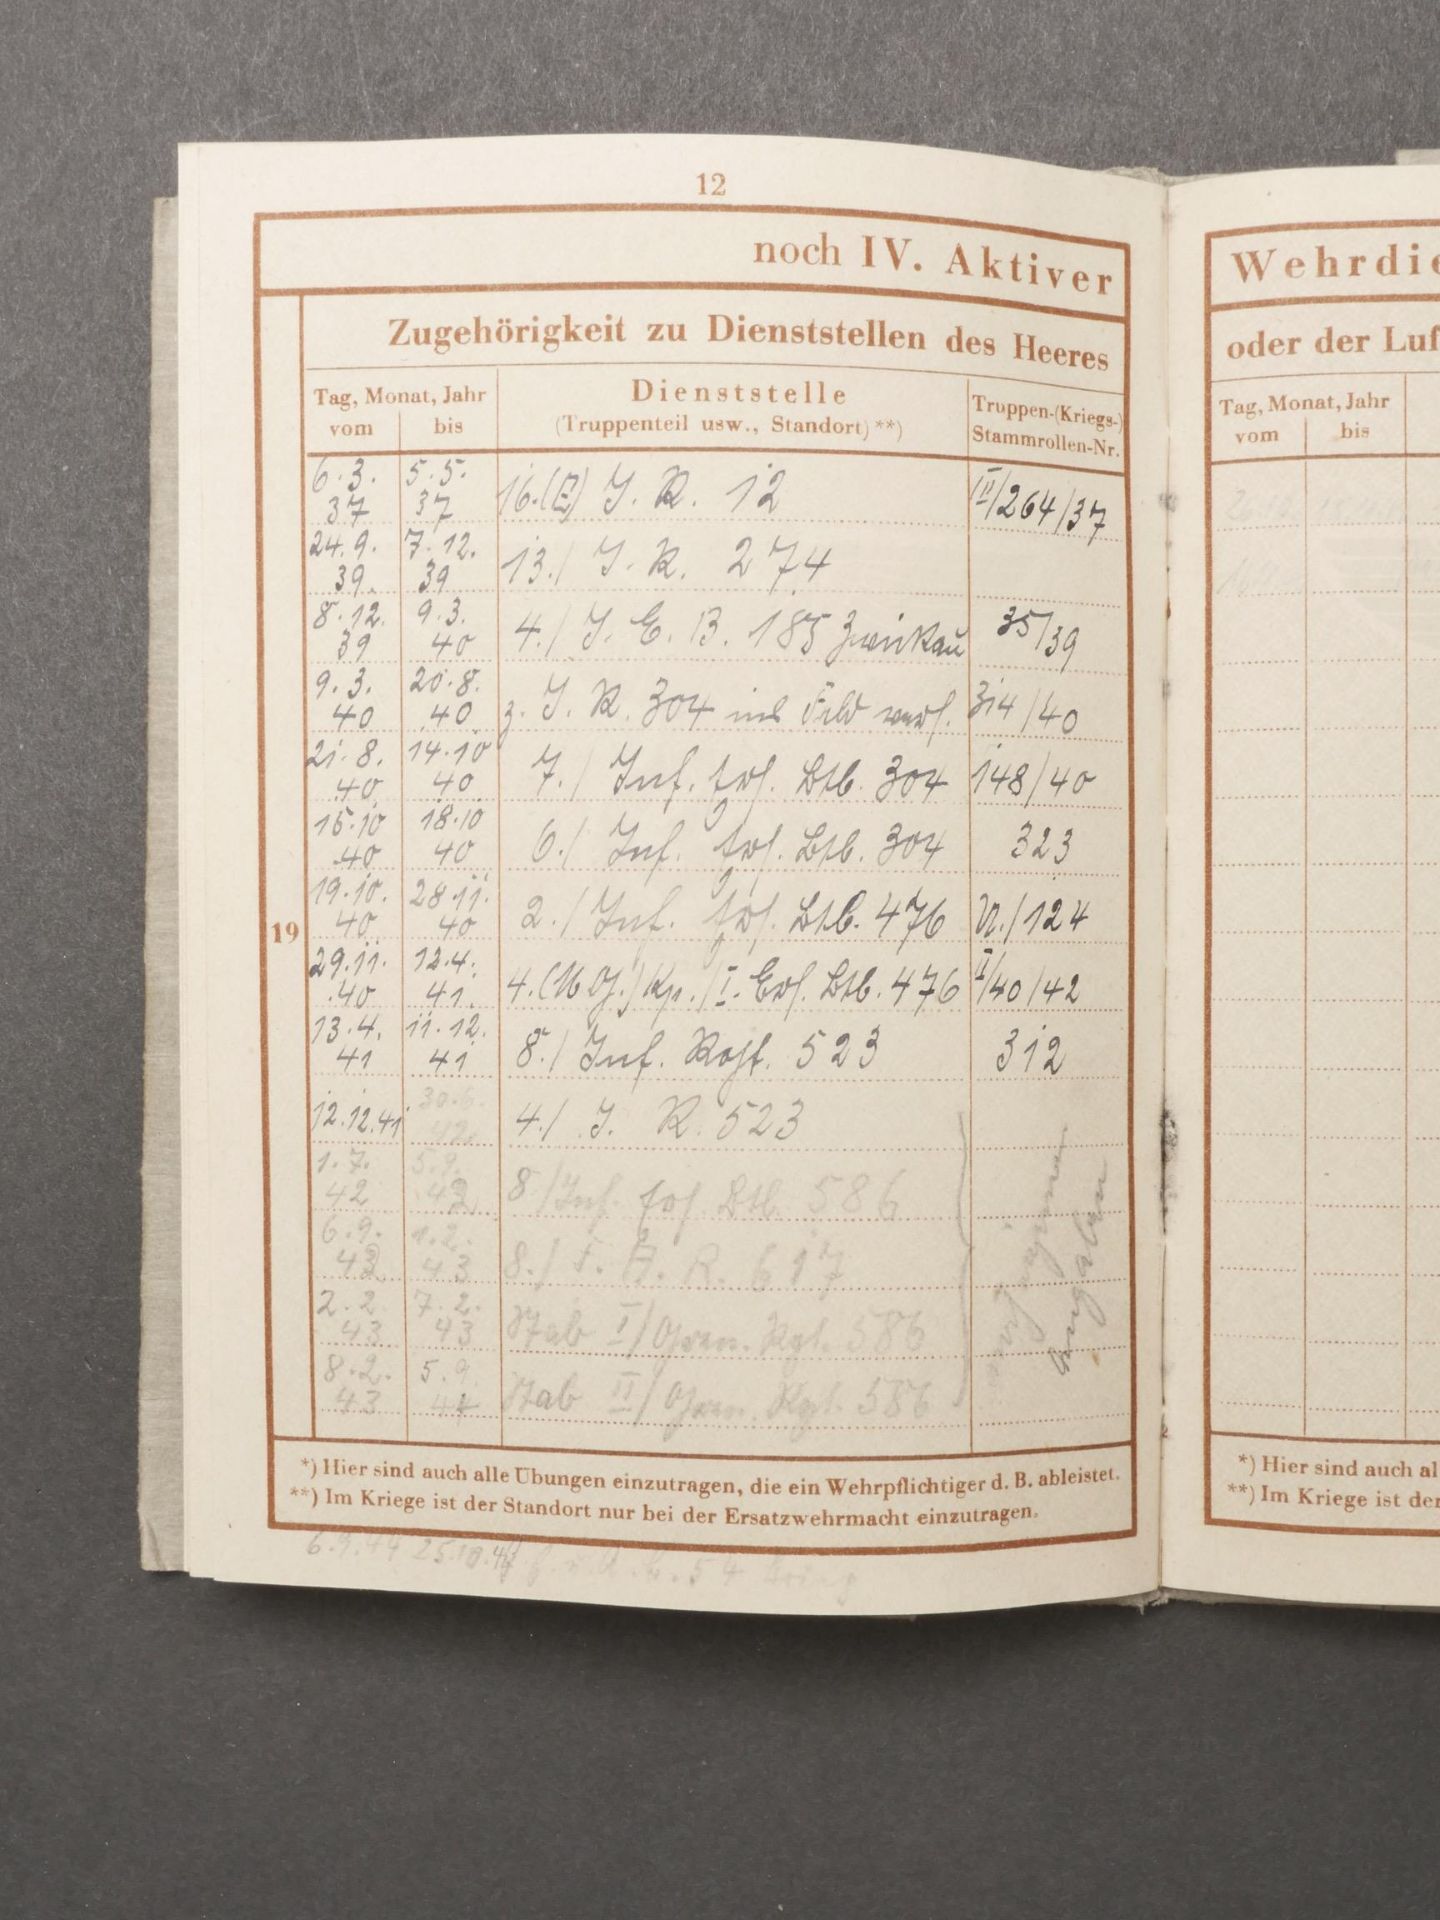 12
noch IV. Aktiver
Zugehörigkeit zu Dienststellen des Heeres
Tag, Monat, Jahr
vom bis
Dienststelle
(Truppenteil usw., Standort)**)
Truppen-(Kriegs-)
Stammrollen-Nr.
19
6.3. 37 5.5. 37 16.(E) J. R. 12 II/264/37
24.9. 39. 7.12. 39 13./ J. R. 274
8.12. 39 9.3. 40 4./ J. E. B. 185 Zwickau 35/39
9.3. 40 20.8. 40 z. J. R. 304 ins Feld vers. 314/40
21.8. 40 14.10 40 7./ Inf. Ers. Btl. 304 148/40
15.10 40 18.10 40 6./ Inf. Ers. Btl. 304 323
19.10. 40 28.11. 40 2./ Inf. Ers. Btl. 476 VI./124
29.11. 40 12.4. 41. 4.(M.G.) Kp./I. Ers. Btl. 476 II/40/42
13.4. 41 11.12. 41 8./ Inf. Rgt. 523 312
12.12.41 30.6. 42. 4./ J. R. 523
1.7. 42 5.9. 42 8./Inf. Ers. Btl. 586
6.9. 42 1.2. 43 8./ R. 617
2.2. 43 7.2. 43 Stab I/Gren. Rgt. 586
8.2. 43 5.9. 44 Stab II/Gren. Rgt. 586
Angaben
*) Hier sind auch alle Übungen einzutragen, die ein Wehrpflichtiger d. B. ableistet.
**) Im Kriege ist der Standort nur bei der Ersatzwehrmacht einzutragen.
6.9.44 25.10.44
Wehrdie
oder der Luf
Tag, Monat, Jahr
vom bis
*) Hier sind auch al
**) Im Kriege ist der